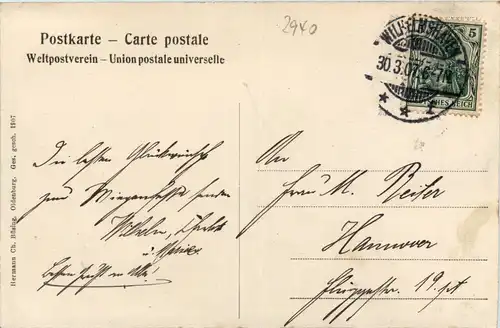 2940
Postkarte – Carte postale
Weltpostverein – Union postale universelle
WILHELMSHAVEN
30.3.07. 6-7
* * 1
5
DEUTSCHES REICH
Hermann Ch. Büsing, Oldenburg. Ges. gesch. 1107
Die besten Glückwünsche
zum Wiegenfeste senden
Wilhelm,
u. Marie
An
Frau M. Reiser
Hannover
19. pt